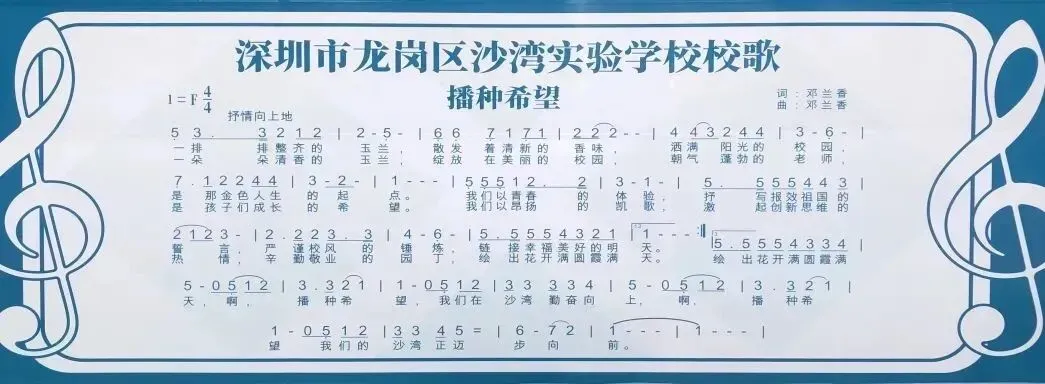 深圳市龙岗区沙湾实验学校校歌
播种希望
1=F 4/4
词:邓兰香
抒情向上地
曲:邓兰香
5 3. 3 2 1 2 | 2 - 5 - | 6 6 7 1 7 1 | 2 2 2 - - | 4 4 3 2 4 4 | 3 - 6 - |
一排 排整齐的 玉兰, 散发 着清新的 香味, 洒满 阳光的 校园,
一朵 朵清香的 玉兰, 绽放 在美丽的 校园, 朝气 蓬勃的 老师,
7. 1 2 2 4 4 | 3 - 2 - | 1 - - - | 5 5 5 1 2. 2 | 3 - 1 - | 5. 5 5 5 4 4 3 |
是 那金色人生 的起 点。 我们以青春 的 体验, 抒 写报效祖国的
是 孩子们成长 的希 望。 我们以昂扬 的 凯歌, 激 起创新思维的
2 1 2 3 - | 2. 2 2 3. 3 | 4 - 6 - | 5. 5 5 5 4 3 2 1 | 1 - - - :|| 5. 5 5 5 4 3 3 4 |
誓言, 严谨校风 的 锤炼, 链 接幸福美好的明 天。
热情, 辛勤敬业 的 园丁, 绘 出花开满圆霞满 天。 绘 出花开满圆霞满
5 - 0 5 1 2 | 3. 3 2 1 | 1 - 0 5 1 2 | 3 3 4 5 5 5 | 5 - 0 5 1 2 | 3. 3 2 1 |
天, 啊, 播种希 望, 我们在 沙湾 勤奋向 上, 啊, 播种希
1 - 0 5 1 2 | 3 3 4 5 = | 6 - 7 2 | 1 - - - | 1 - - - |
望 我们的 沙湾 正迈 步向 前。